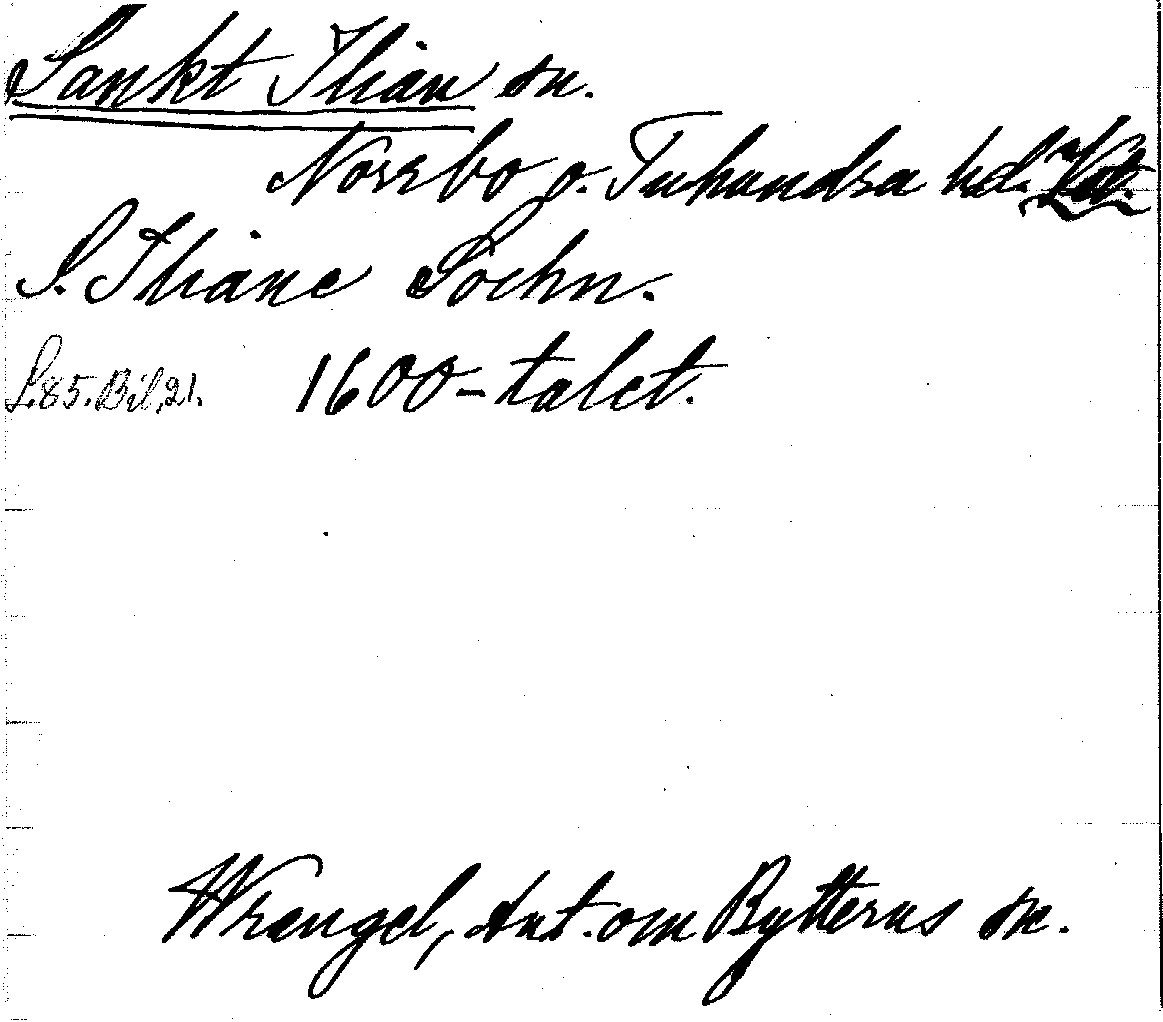 Sankt Ilian sn.
Norrbo o. Tuhundra hd. Vstm.
S. Iliane Sochn.
S.85.Bil.21. 1600-talet.
Wrangel, Ant. om Rytterns sn.